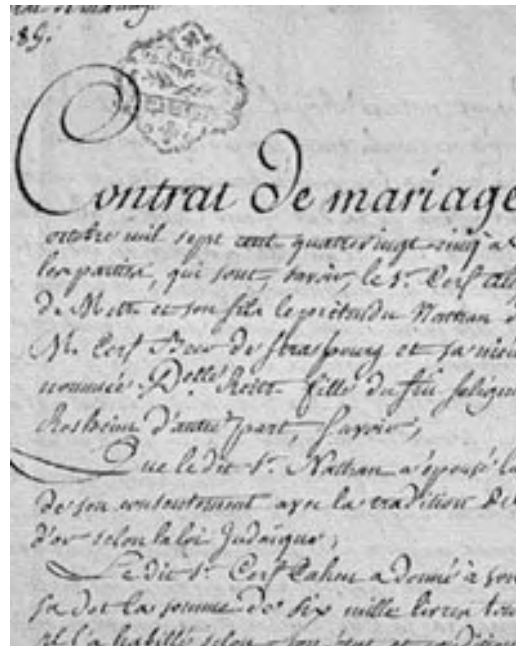 de mariage
89.
Contrat De mariage
octobre mil sept cent quatrevingt cinq à
les parties, qui sont, savoir, le S.r Cerf
de Metz et son fils le prétendu Nathan
M. Cerf Beer de Strasbourg et sa
nommée D.elle fille du feu
Rosheim d'autre part, Savoir,
Que le dit S.r Nathan a épousé la
de son consentement avec la tradition de
d'or selon la loi Judaïque;
Le dit S.r Cerf Cahen a donné à son
sa dot la somme de six mille livres tour
et l'a habillé selon son